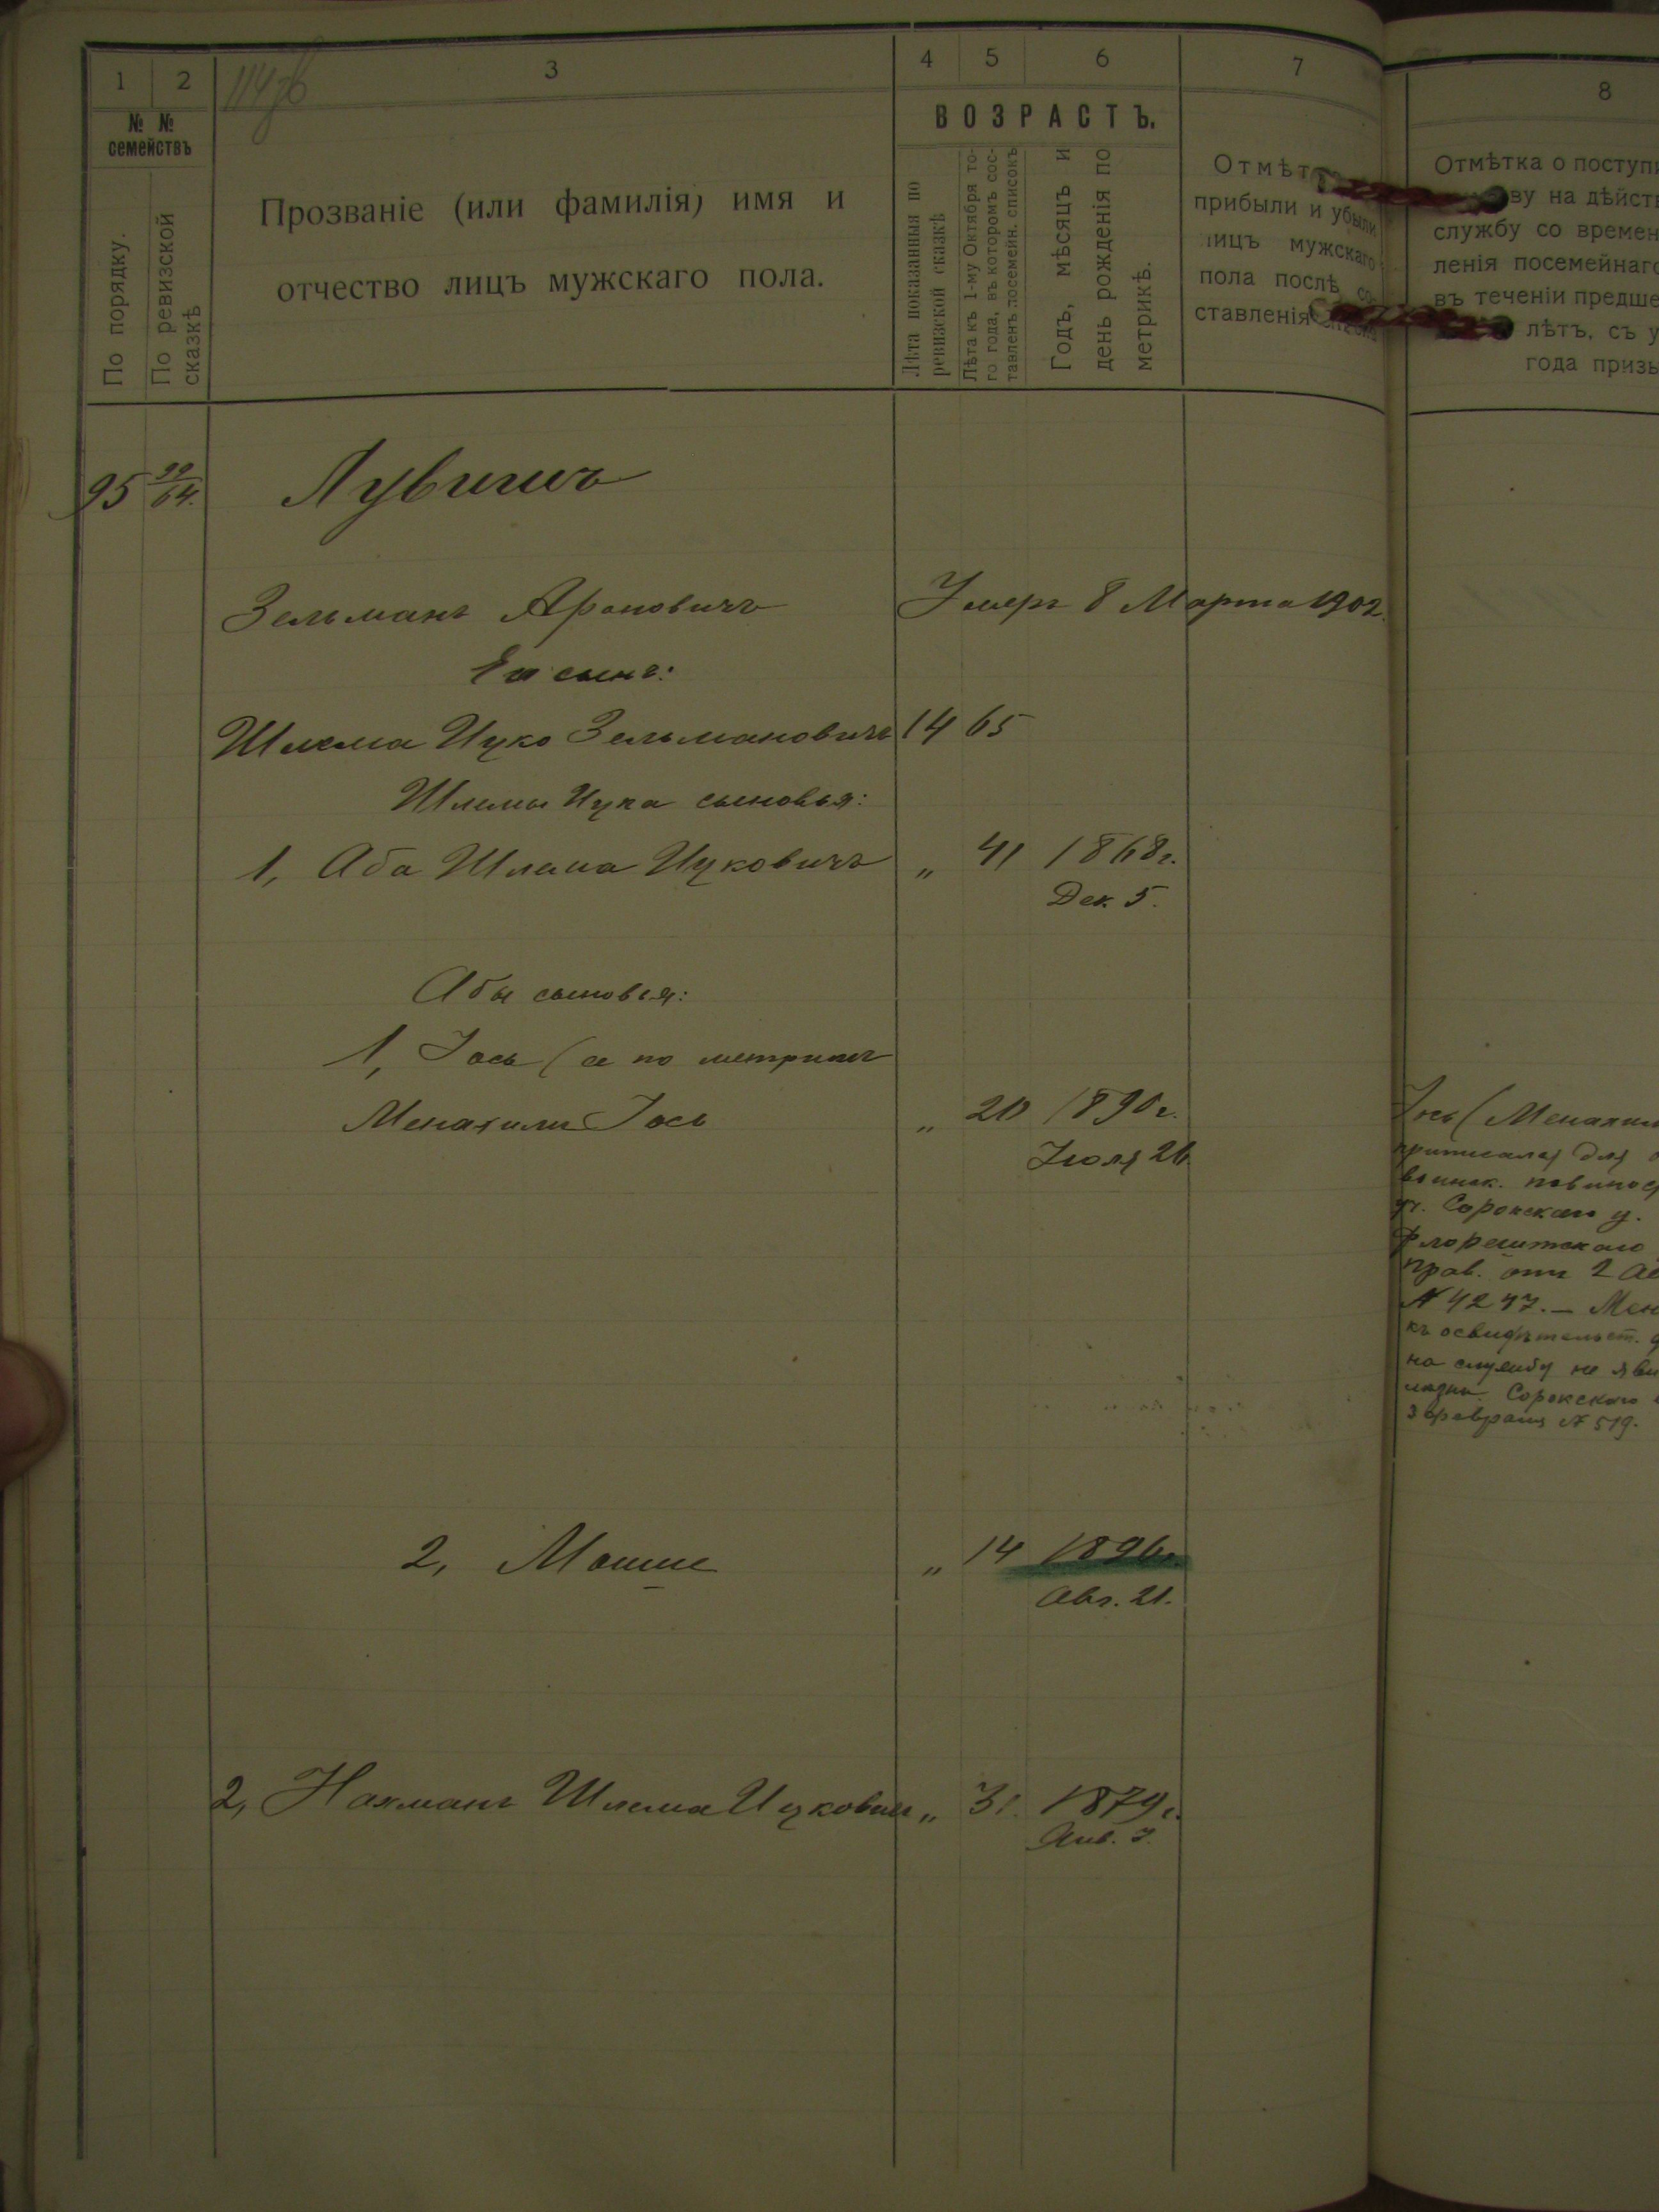 1 2 3 4 5 6 7
114 об
№ №
семействъ
По порядку.
По ревизской
сказкѣ
Прозваніе (или фамилія) имя и
отчество лицъ мужскаго пола.
ВОЗРАСТЪ.
Лѣта показанныя по
ревизской сказкѣ
Лѣта къ 1-му Октября то-
го года, въ которомъ сос-
тавленъ посемейн. списокъ
Годъ, мѣсяцъ и
день рожденія по
метрикѣ.
Отмѣт
прибыли и убыли
лицъ мужскаго
пола послѣ со-
ставленія
95 99/64. Лувишъ
Зельманъ Ароновичъ Умеръ 8 Марта 1902.
Его сынъ:
Шлема Ицко Зельмановичъ 14 65
Шлемы Ицка сыновья:
1, Аба Шлема Ицковичъ „ 41 1868г.
Дек. 5.
Абы сыновья:
1, Іось (а по метрикѣ
Менахимъ Іось „ 20 1890г.
Іюля 26
2, Мошше „ 14 1896г.
Авг. 21.
2, Нахманъ Шлема Ицковичъ „ 31. 1879г.
Янв. 7.
8
Отмѣтка о поступи
ву на дѣйств
службу со времен
ленія посемейнаго
въ теченіи предше
лѣтъ, съ у
года призы
Іось (Менахим
приписалъ для
воинск. повинос
уч. Сорокскаго у.
Флорештскаго
прав. отъ 2 Ав
№ 4247. — Мен
къ освидѣтельст.
на службу не яви
Сорокскаго
3 февраля № 519.